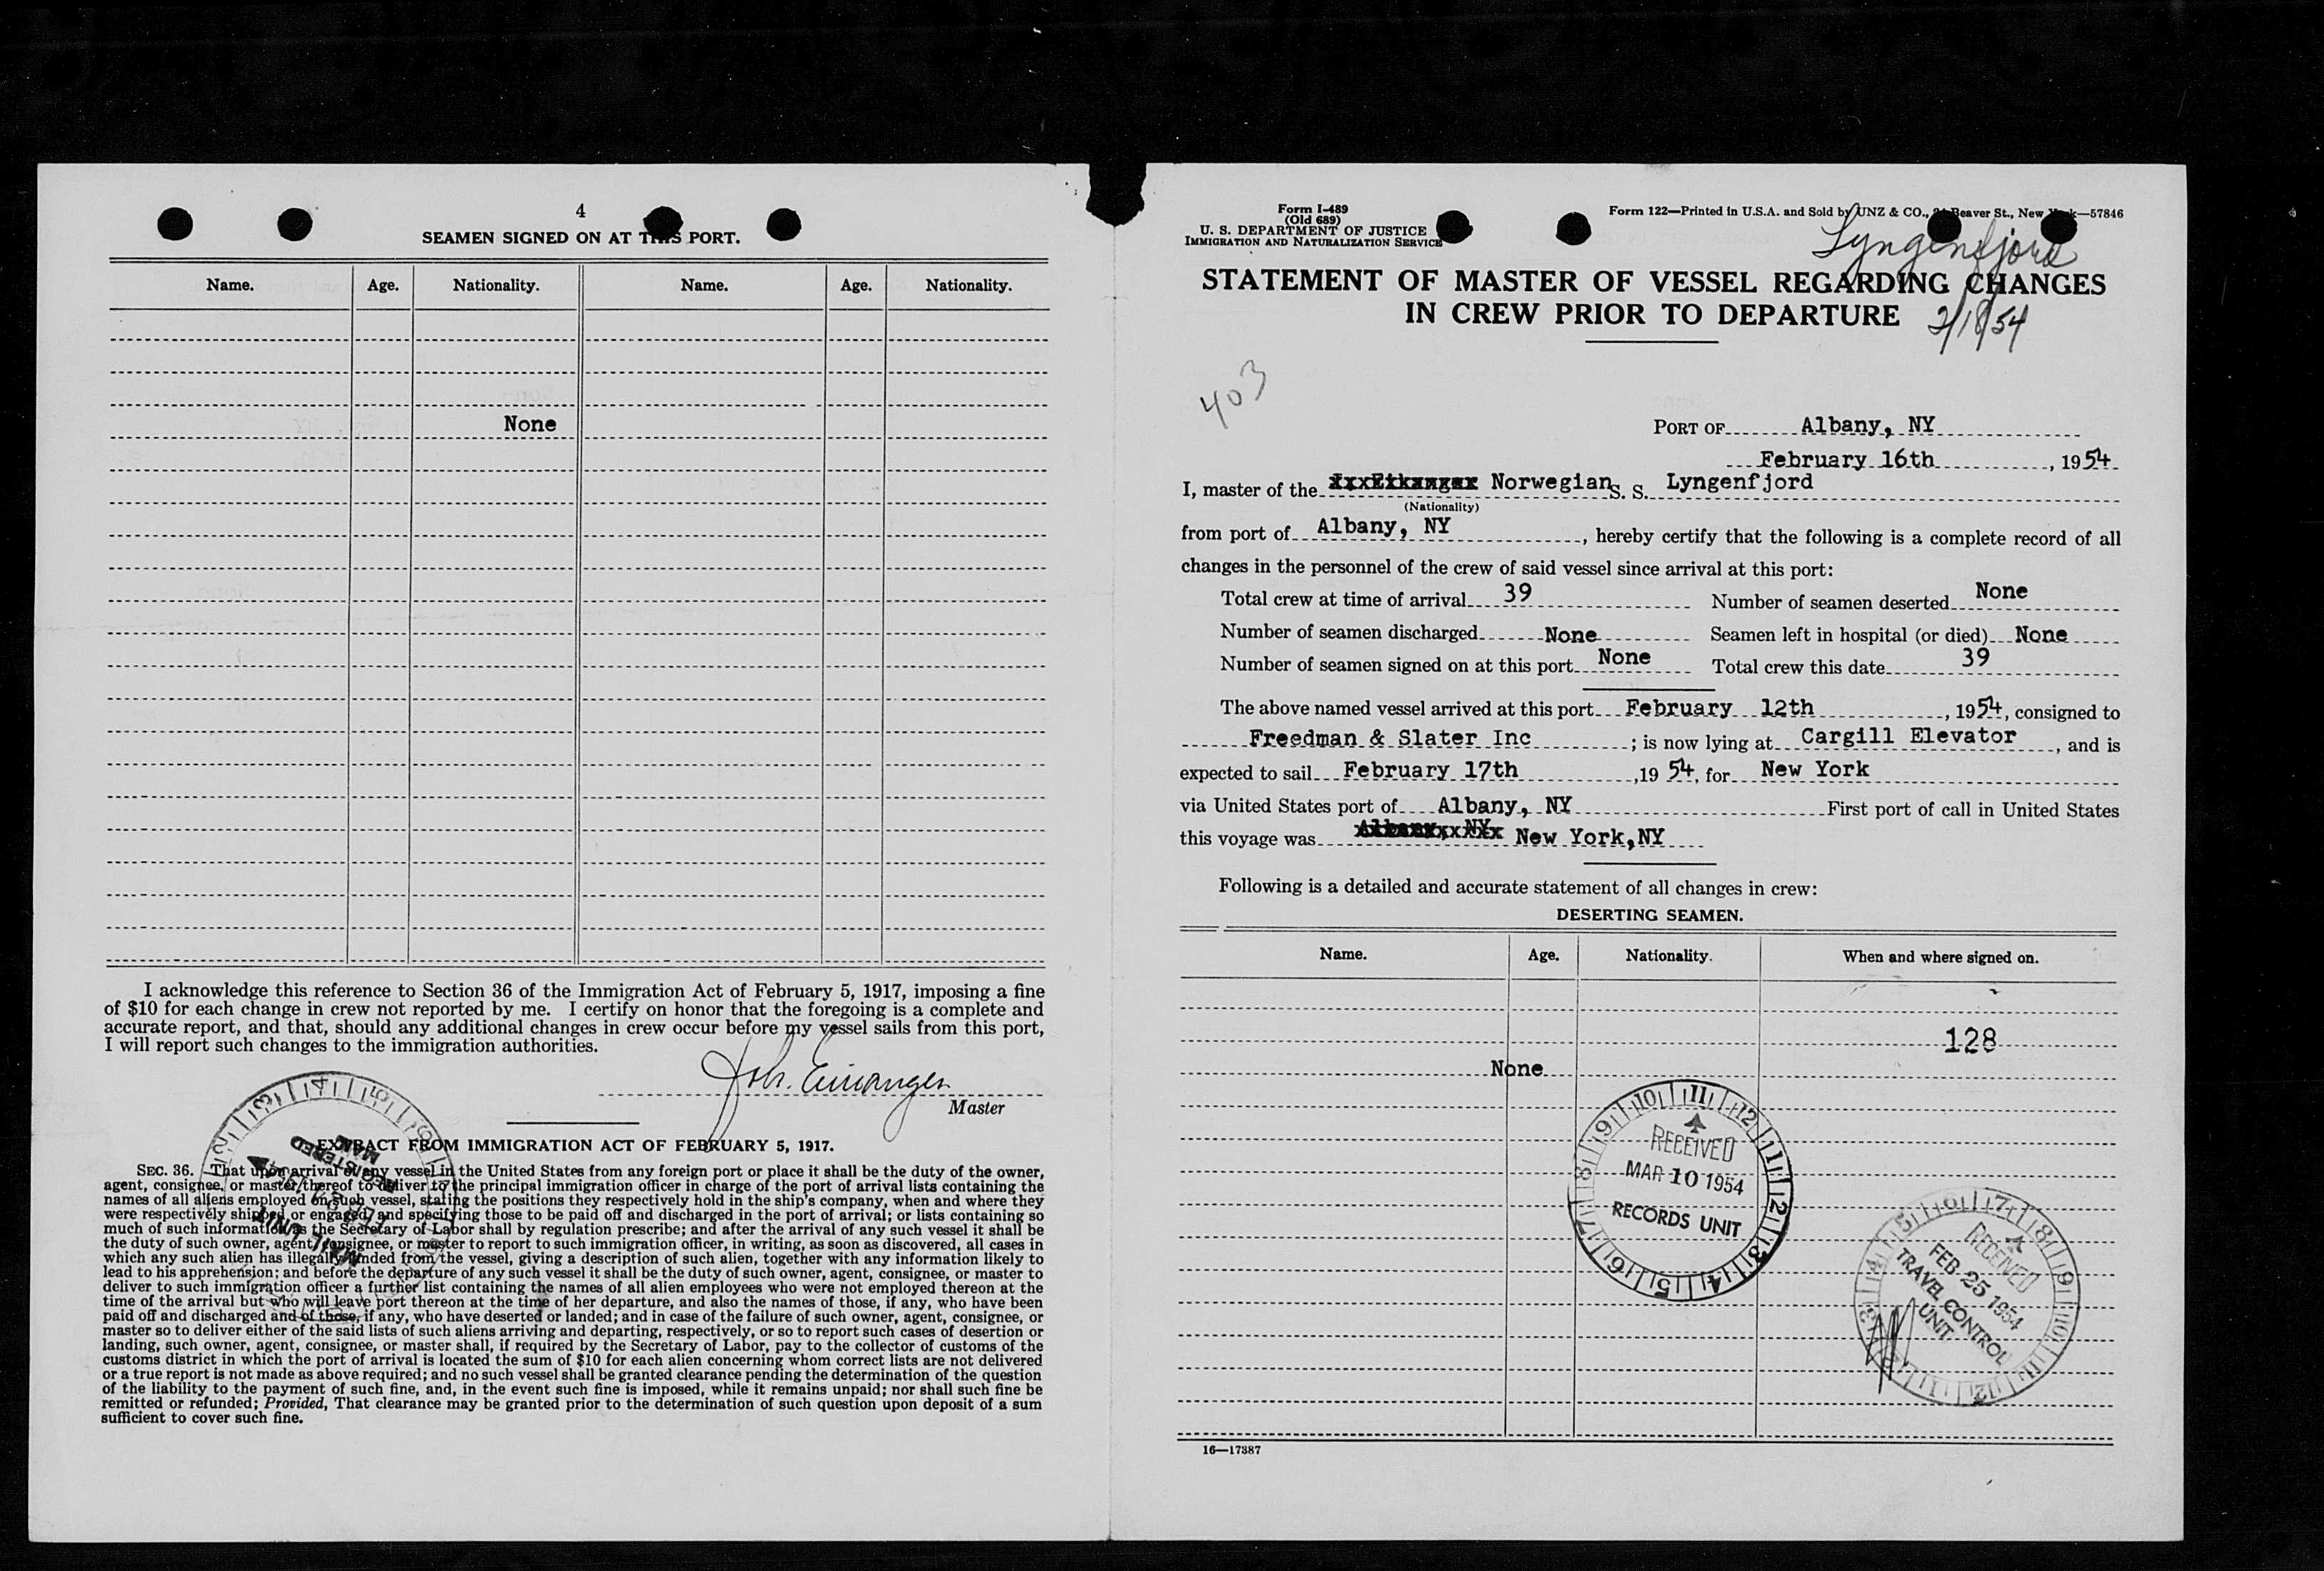 4
SEAMEN SIGNED ON AT THIS PORT.
Name. Age. Nationality. Name. Age. Nationality.
None
I acknowledge this reference to Section 36 of the Immigration Act of February 5, 1917, imposing a fine
of $10 for each change in crew not reported by me. I certify on honor that the foregoing is a complete and
accurate report, and that, should any additional changes in crew occur before my vessel sails from this port,
I will report such changes to the immigration authorities.
Joh.
Master
EXTRACT FROM IMMIGRATION ACT OF FEBRUARY 5, 1917.
SEC. 36. That upon arrival of any vessel in the United States from any foreign port or place it shall be the duty of the owner,
agent, consignee, or master thereof to deliver to the principal immigration officer in charge of the port of arrival lists containing the
names of all aliens employed on such vessel, stating the positions they respectively hold in the ship's company, when and where they
were respectively shipped or engaged, and specifying those to be paid off and discharged in the port of arrival; or lists containing so
much of such information as the Secretary of Labor shall by regulation prescribe; and after the arrival of any such vessel it shall be
the duty of such owner, agent, consignee, or master to report to such immigration officer, in writing, as soon as discovered, all cases in
which any such alien has illegally landed from the vessel, giving a description of such alien, together with any information likely to
lead to his apprehension; and before the departure of any such vessel it shall be the duty of such owner, agent, consignee, or master to
deliver to such immigration officer a further list containing the names of all alien employees who were not employed thereon at the
time of the arrival but who will leave port thereon at the time of her departure, and also the names of those, if any, who have been
paid off and discharged and of those, if any, who have deserted or landed; and in case of the failure of such owner, agent, consignee, or
master so to deliver either of the said lists of such aliens arriving and departing, respectively, or so to report such cases of desertion or
landing, such owner, agent, consignee, or master shall, if required by the Secretary of Labor, pay to the collector of customs of the
customs district in which the port of arrival is located the sum of $10 for each alien concerning whom correct lists are not delivered
or a true report is not made as above required; and no such vessel shall be granted clearance pending the determination of the question
of the liability to the payment of such fine, and, in the event such fine is imposed, while it remains unpaid; nor shall such fine be
remitted or refunded; Provided, That clearance may be granted prior to the determination of such question upon deposit of a sum
sufficient to cover such fine.
MAIL UNIT
Form I-489
(Old 689)
U. S. DEPARTMENT OF JUSTICE
IMMIGRATION AND NATURALIZATION SERVICE
Form 122—Printed in U.S.A. and Sold by UNZ & CO., Beaver St., New York—57846
Lyngenfjord
STATEMENT OF MASTER OF VESSEL REGARDING CHANGES
IN CREW PRIOR TO DEPARTURE
2/18/54
403
PORT OF Albany, NY
February 16th, 1954
I, master of the Norwegian S. S. Lyngenfjord
(Nationality)
from port of Albany, NY, hereby certify that the following is a complete record of all
changes in the personnel of the crew of said vessel since arrival at this port:
Total crew at time of arrival 39 Number of seamen deserted None
Number of seamen discharged None Seamen left in hospital (or died) None
Number of seamen signed on at this port None Total crew this date 39
The above named vessel arrived at this port February 12th, 1954, consigned to
Freedman & Slater Inc; is now lying at Cargill Elevator, and is
expected to sail February 17th, 1954, for New York
via United States port of Albany, NY First port of call in United States
this voyage was New York, NY
Following is a detailed and accurate statement of all changes in crew:
DESERTING SEAMEN.
Name. Age. Nationality. When and where signed on.
128
None
RECEIVED
MAR 10 1954
RECORDS UNIT
RECEIVED
FEB 25 1954
TRAVEL CONTROL
UNIT
16—17387